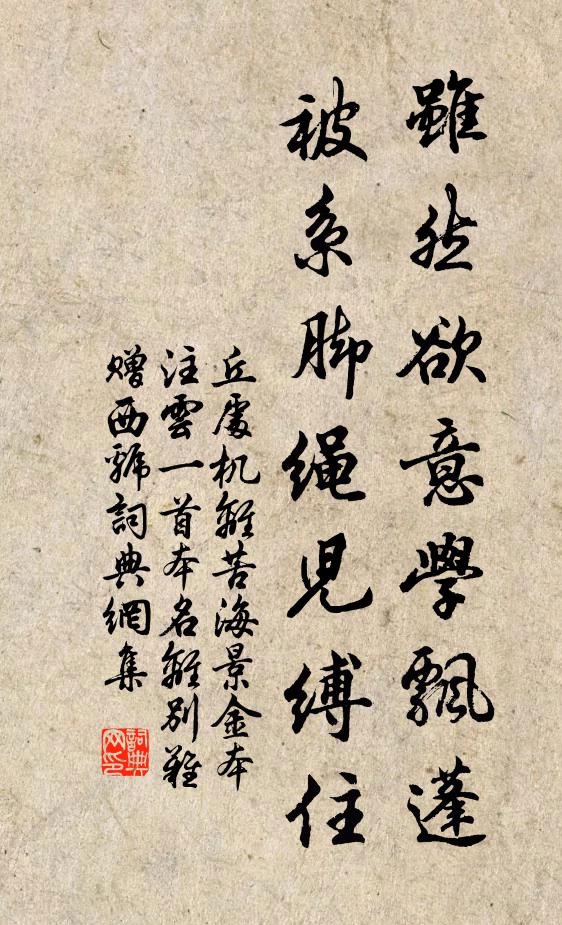 雖然欲意學飄蓬
被系脚繩児縛住
丘處机離苦海景金本
注雲一首本名離別難
贈西號詞典網集
詞典網印